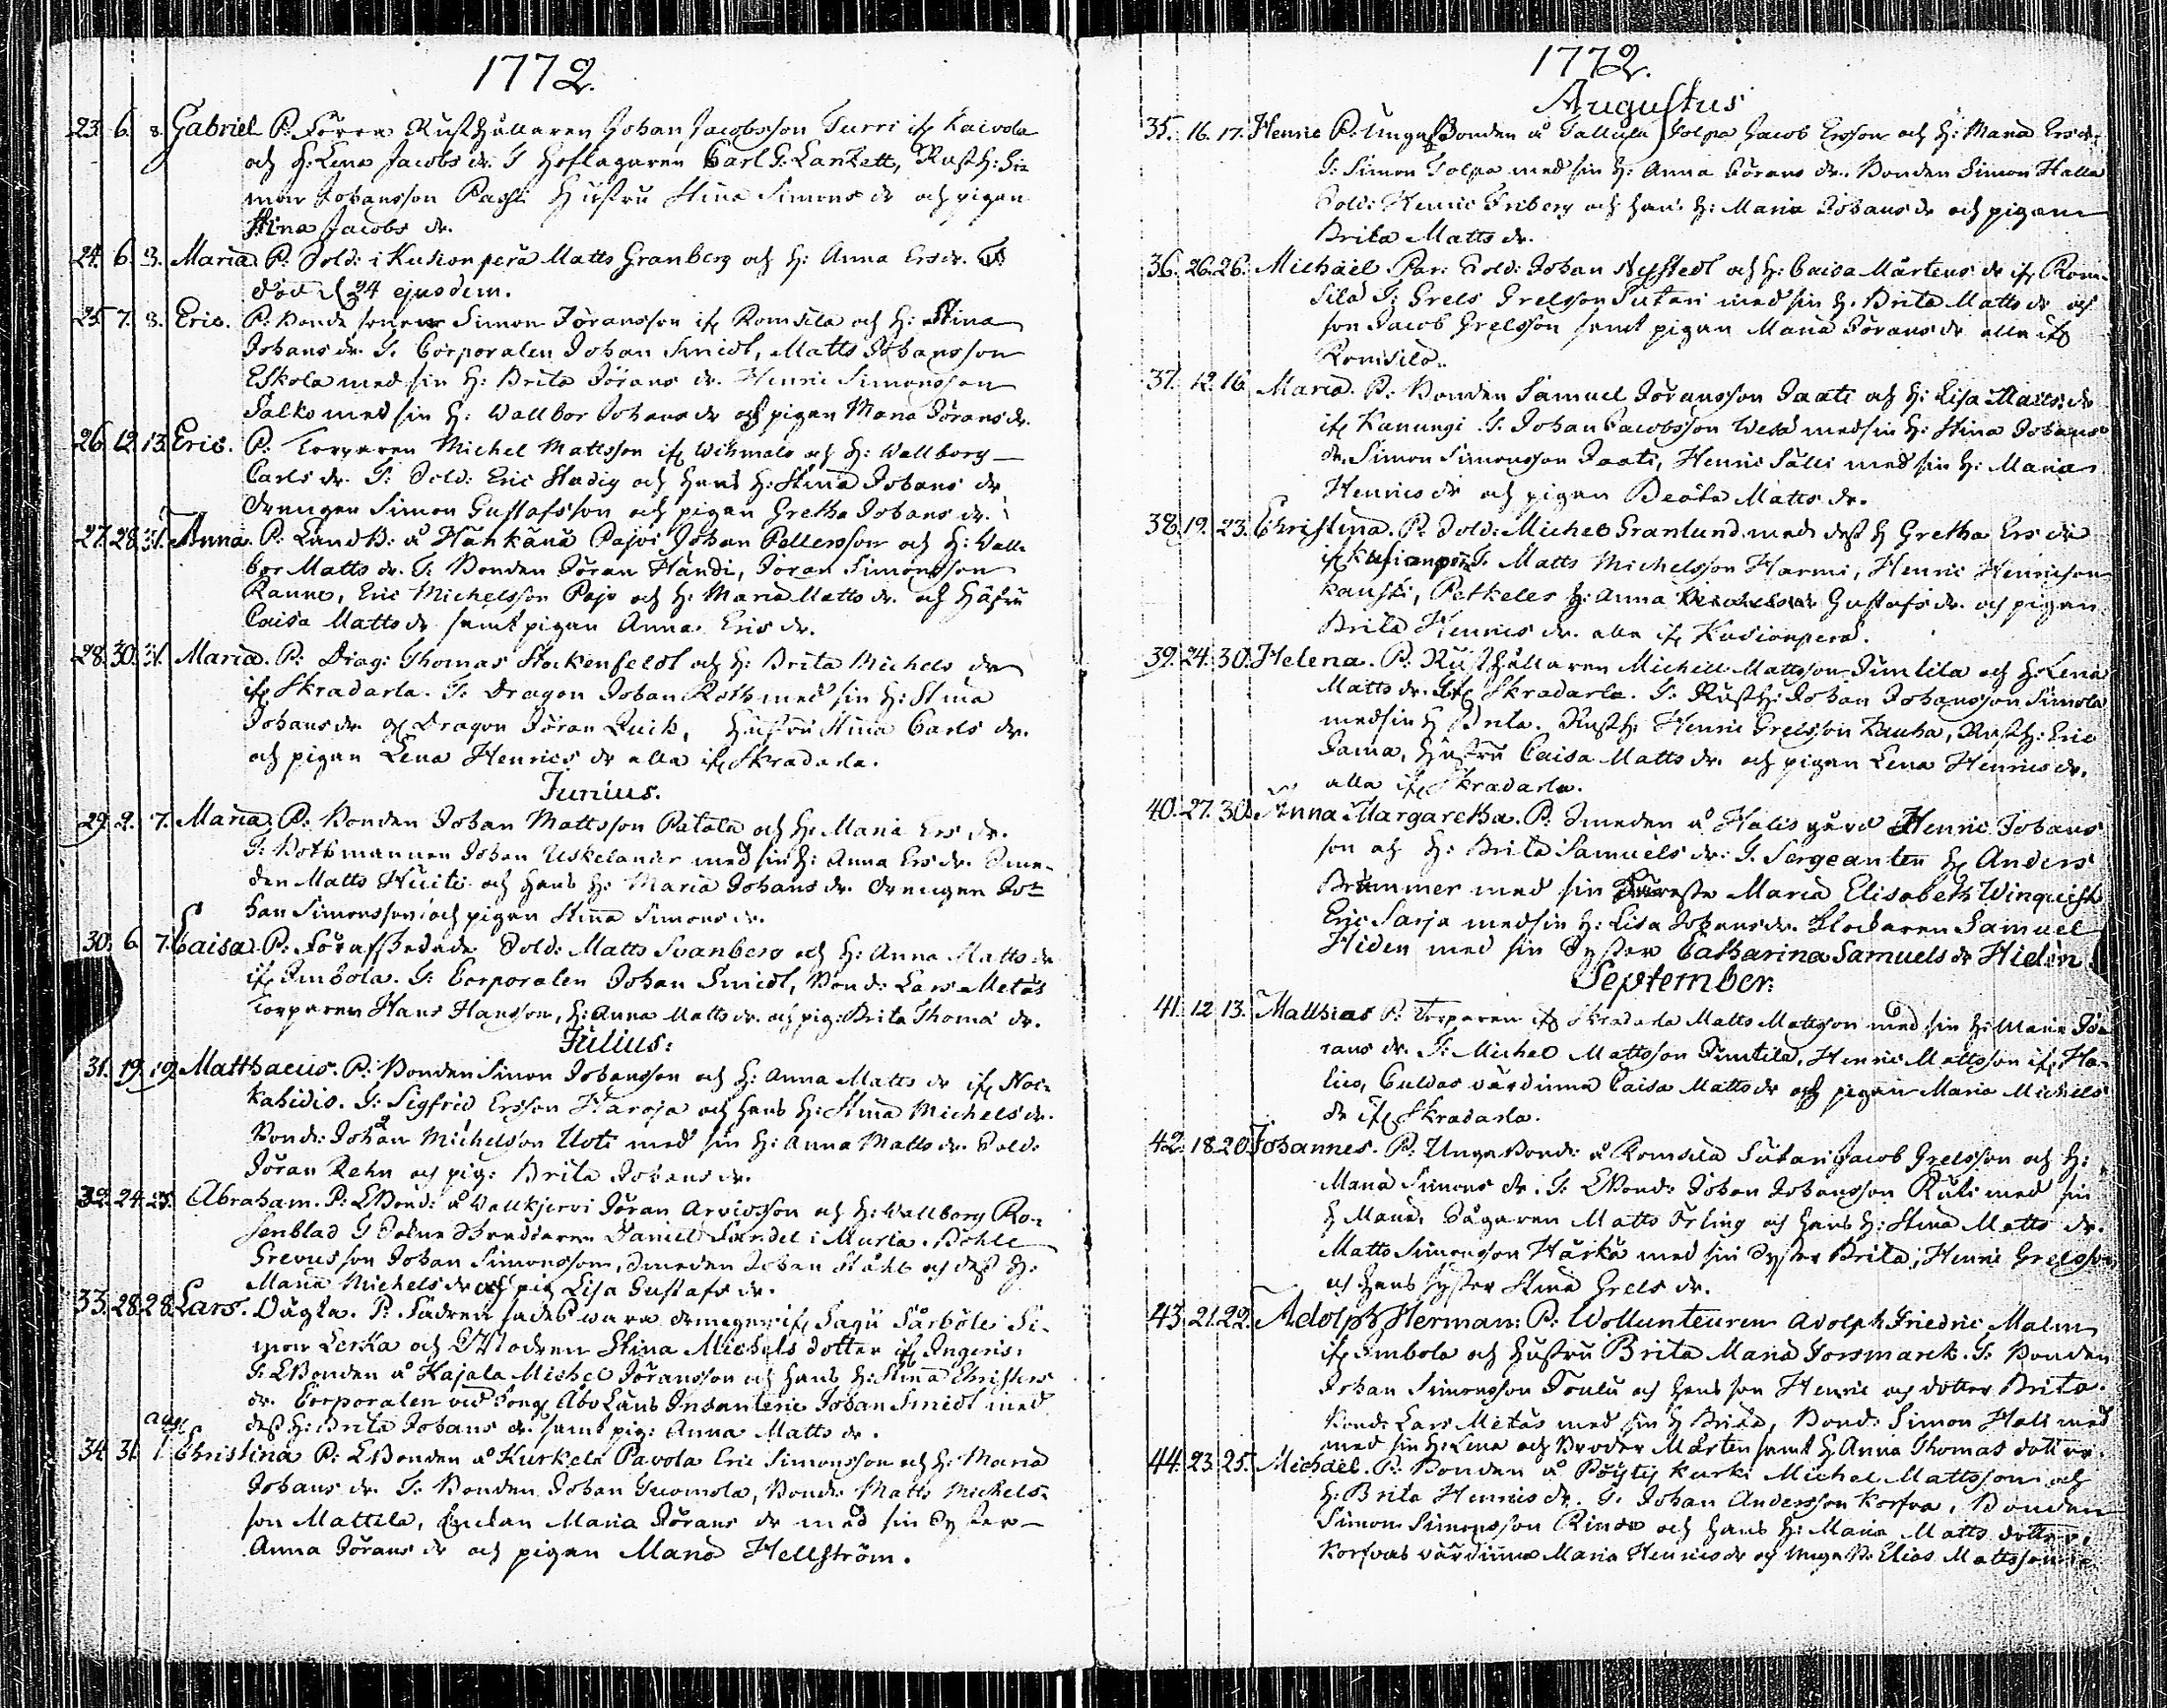 1772.
23. 6. 8. Gabriel P. Förra Rusthållaren Johan Jacobsson Turri if. Kaivola
och H: Lena Jacobs dr. T Hoftagaren Carl G. Lankett, Rusth: Si-
mon Johansson Hustru Stina Simons dr och pigan
Stina Jacobs dr.
24. 6. 8. Maria. P: Sold: i Kusionperä Matts Granberg och H: Anna Ers dr.
död d. 24 ejusdem.
25. 7. 8. Eric. P: Bonde sonen Simon Jöransson if. Romsila och H: Stina
Johans dr. T. Corporalen Johan Smidt, Matts Johansson
Eskola med sin H: Brita Jörans dr. Henric Simonsson
Salko med sin H: Wallbor Johans dr och pigan Maria Jörans dr.
26. 12. 13. Eric. P. Torparen Michel Mattsson if. Wihmalo och H: Wallborg
Carls dr. T: Sold: Eric Stadig och Hans H: Stina Johans dr
drengen Simon Gustafsson och pigan Gretha Johans dr.
27. 28. 31. Anna. P: Landb: å Hänkänä Pajoi Johan Pettersson och H: Wall-
bor Matts dr. T. Bonden Jöran Händi, Jöran Simonsson
Ranne, Eric Michelsson Pajo och H: Maria Matts dr. och Hustru
Caisa Matts dr samt pigan Anna Erics dr.
28. 30. 31. Maria. P: Drag: Thomas Stockenfeldt och H: Brita Michels dr
if. Skradarla. T. Dragon Johan Roth med sin H: Stina
Johans dr och Dragon Jöran Quick, Hustru Stina Carls dr.
och pigan Lena Henrics dr alla if. Skradarla.
Junius.
29. 2. 7. Maria. P: Bonden Johan Mattsson Patala och H: Maria Ers dr.
T: Båthmannen Johan Uskelander med sin H: Anna Ers dr. Sme-
den Matts Huiti och Hans H: Maria Johans dr. drengen Jo-
han Simonsson och pigan Stina Simons dr.
30. 6. 7. Caisa. P: För afskedade Sold: Matts Svanberg och H: Anna Matts dr
if. Imbola. T: Corporalen Johan Smidt, Bond: Lars Metäs
Torparen Hans Hansson, H: Anna Matts dr. och pig: Brita Thomæ dr.
Julius:
31. 19. 19. Matthaeus. P: Bonden Simon Johansson och H: Anna Matts dr if. Noc-
kahidis. T: Sigfrid Ersson Haroja och Hans H: Stina Michels dr.
Bond: Johan Michelsson Uoti med sin H: Anna Matts dr. Sold:
Jöran Rehn och pig: Brita Johans dr.
32. 24. 25. Abraham. P: Bond: å Wallkjervi Jöran Arvidsson och H: Wallborg Ro-
senblad T Daniel Sundel i Murla. Böhle
Grevus son Johan Simonsson, Smeden Johan Ståhl och dess H:
Maria Michels dr och pig Lisa Gustafs dr.
33. 28. 28. Lars. Oägta. P. Fadren sades wara drengen if. Sagu Sårböle Si-
mon Lerka och Modren Stina Michels dotter if. Ingeris.
T: Bonden å Kajala Michel Jöransson och Hans H: Stina Christers
dr. Corporalen vid Kong. Åbo Läns Infanterie Johan Smidt med
dess H: Brita Johans dr. samt pig: Anna Matts dr.
aug.
34. 31. 1. Christina P: Bonden å Kurkela Pavola Eric Simonsson och H: Maria
Johans dr. T. Bonden Johan Suomola, Bond: Matts Michels-
son Mattila, Enckan Maria Jörans dr med sin Syster
Anna Jörans dr och pigan Maria Hellström.
1772.
Augustus
35. 16. 17. Henric P: Unga Bonden å Tallula Tolpa Jacob Ersson och H: Maria Ers dr.
T: Simon Tolpa med sin H: Anna Jörans dr. Bonden Simon Halla
Sold: Henric Friberg och hans H: Maria Johans dr och pigan
Brita Matts dr.
36. 26. 26. Michael. Par: Sold: Johan Nystedt och H: Caisa Mårtens dr if. Rom-
sila T: Grels Grelsson Sutari med sin H. Brita Matts dr och
son Jacob Grelsson samt pigan Maria Jörans dr alla if.
Romsila.
37. 12. 16. Maria. P: Bonden Samuel Jöransson Jaati och H: Lisa Matts dr
if. Kanungi. T. Johan Jacobsson med sin H: Stina Johans
dr. Simon Simonsson Jaati, Henric Sälli med sin H: Maria
Henrics dr och pigan Beata Matts dr.
38. 19. 23. Christina. P. Sold: Michel Granlund med dess H Gretha Ers dr
if. Kusionperä. T. Matts Michelsson Harmi, Henric Henricsson
Kauski, Petkeles H: Anna Gustafs dr. och pigan
Brita Henrics dr. alla if. Kusionperä.
39. 24. 30. Helena. P: Rusthållaren Michell Mattsson Simtila och H: Lena
Matts dr. if. Skradarla. T. Rusth: Johan Johansson Simola
med sin H Brita. Rusth: Henric Grelsson Kauha, Rusth: Eric
Jama, Hustru Caisa Matts dr. och pigan Lena Henrics dr.
alla if. Skradarla.
40. 27. 30. Anna Margaretha. P: Smeden å Halisgård Henric Johans
son och H: Brita Samuels dr: T. Sergeanten H. Anders
Brummer med sin Maria Elisabeth Winquist
Eric Sarja med sin H: Lisa Johans dr. Klockaren Samuel
Hiden med sin Syster Catharina Samuels dr Hiden
September.
41. 12. 13. Matthias P: Torparen if. Skradarla Matts Mattsson med sin H: Maria Jö-
rans dr. T: Michel Mattsson Simtila, Henric Mattsson if. Ha-
lics, Culdas värdinna Caisa Matts dr och pigan Maria Michels
dr if. Skradarla.
42. 18. 20. Johannes. P. Unga Bond: å Romsila Sutari Jacob Grelsson och H:
Maria Simons dr. T: Bond: Johan Johansson Ruti med sin
H Maria, Sågaren Matts Örling och hans H: Stina Matts dr.
Matts Simonsson Härkä med sin Syster Brita, Henric Grelsson
och hans syster Stina Grels dr.
43. 21. 22. Adolph Herman: P: Wollunteuren Adolph Friedric Malm
if. Imbola och Hustru Brita Maria Forsmarck. T. Bonden
Johan Simonsson Toulu och hans son Henric och dotter Brita.
Bond: Lars Metäs med sin H Brita, Bond: Simon Hali med
med sin H: Lena och Broder Mårten samt H Anna Thomas dotter.
44. 23. 25. Michael. P: Bonden å Pöytis Kurki Michel Mattsson och
H: Brita Henrics dr. T: Johan Andersson Korfva, Bonden
Simon Simonsson Rinda och hans H: Maria Matts dotter,
Korfvas värdinna Maria Henrics dr och unga B. Elias Mattsson